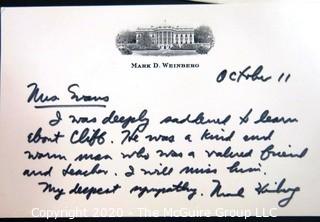 MARK D. WEINBERG
October 11
Mrs. Evans
I was deeply saddened to learn
about Cliff. He was a kind and
warm man who was a valued friend
and teacher. I will miss him.
My deepest sympathy. Mark Weinberg
Copyright 2020 - The McGuffey Reserve